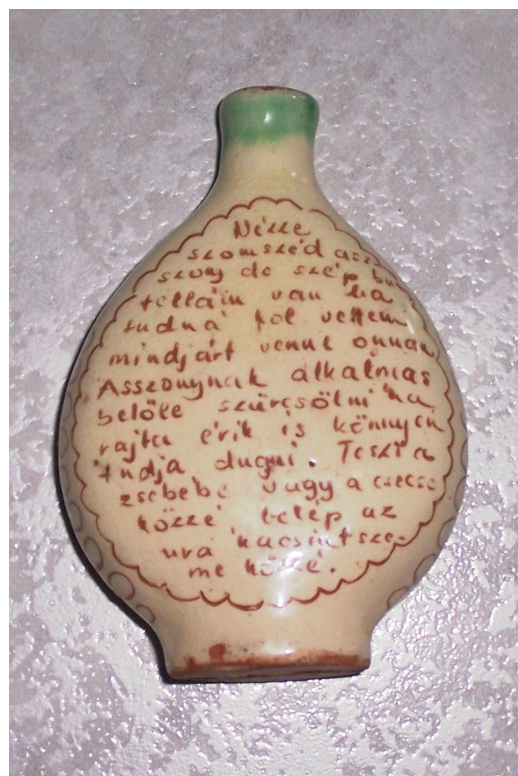 Nézze
szomszéd assz
szony de szép bu
telláin van ha
tudná fol vettem
mindjárt venne onnan
Asszonynak alkalmas
belőle szürcsölni ha
rajta érik is könnyen
tudja dugni. Teszi a
zsebebe vagy a csecse
közzé belép az
ura kacsint sze-
me közzé.